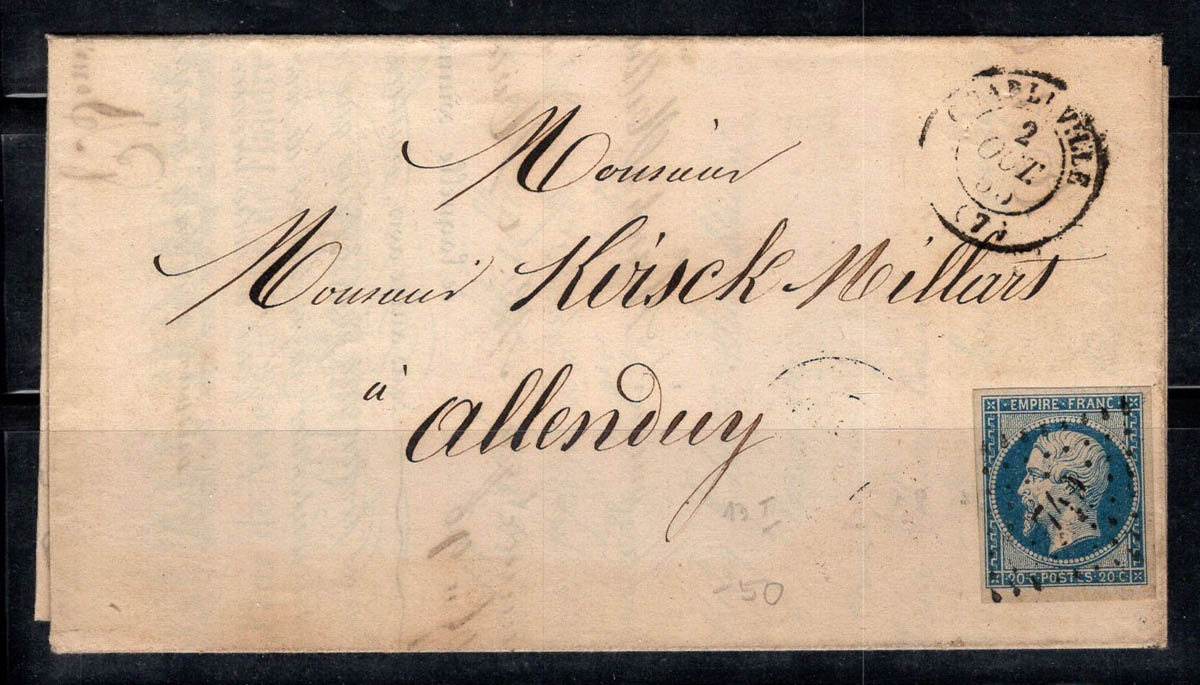 CHARLEVILLE
2
OCT.
(7)
Monsieur
Monsieur Kvisck Millart
à
allenduy
EMPIRE FRANC
20 C POSTES 20 C
13 II
-50